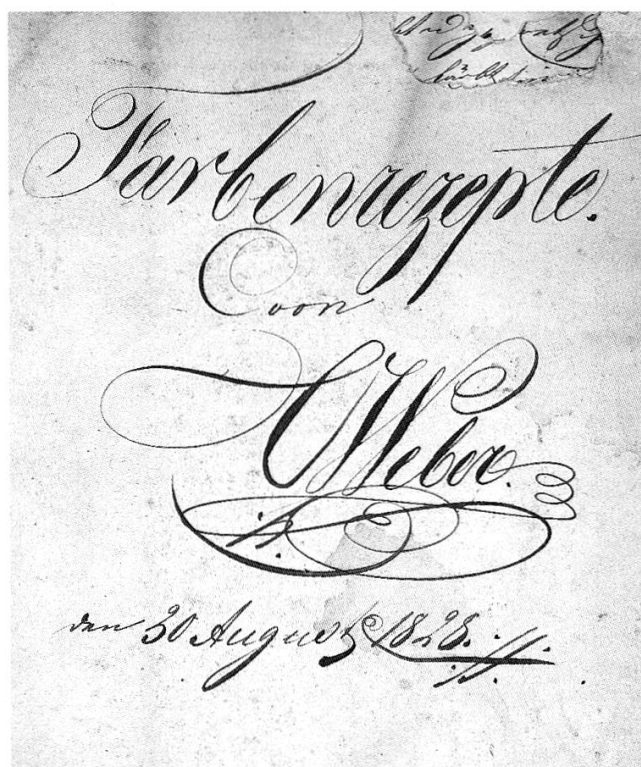 Farbenrezepte.
von
Weber.
den 30 August 1828.